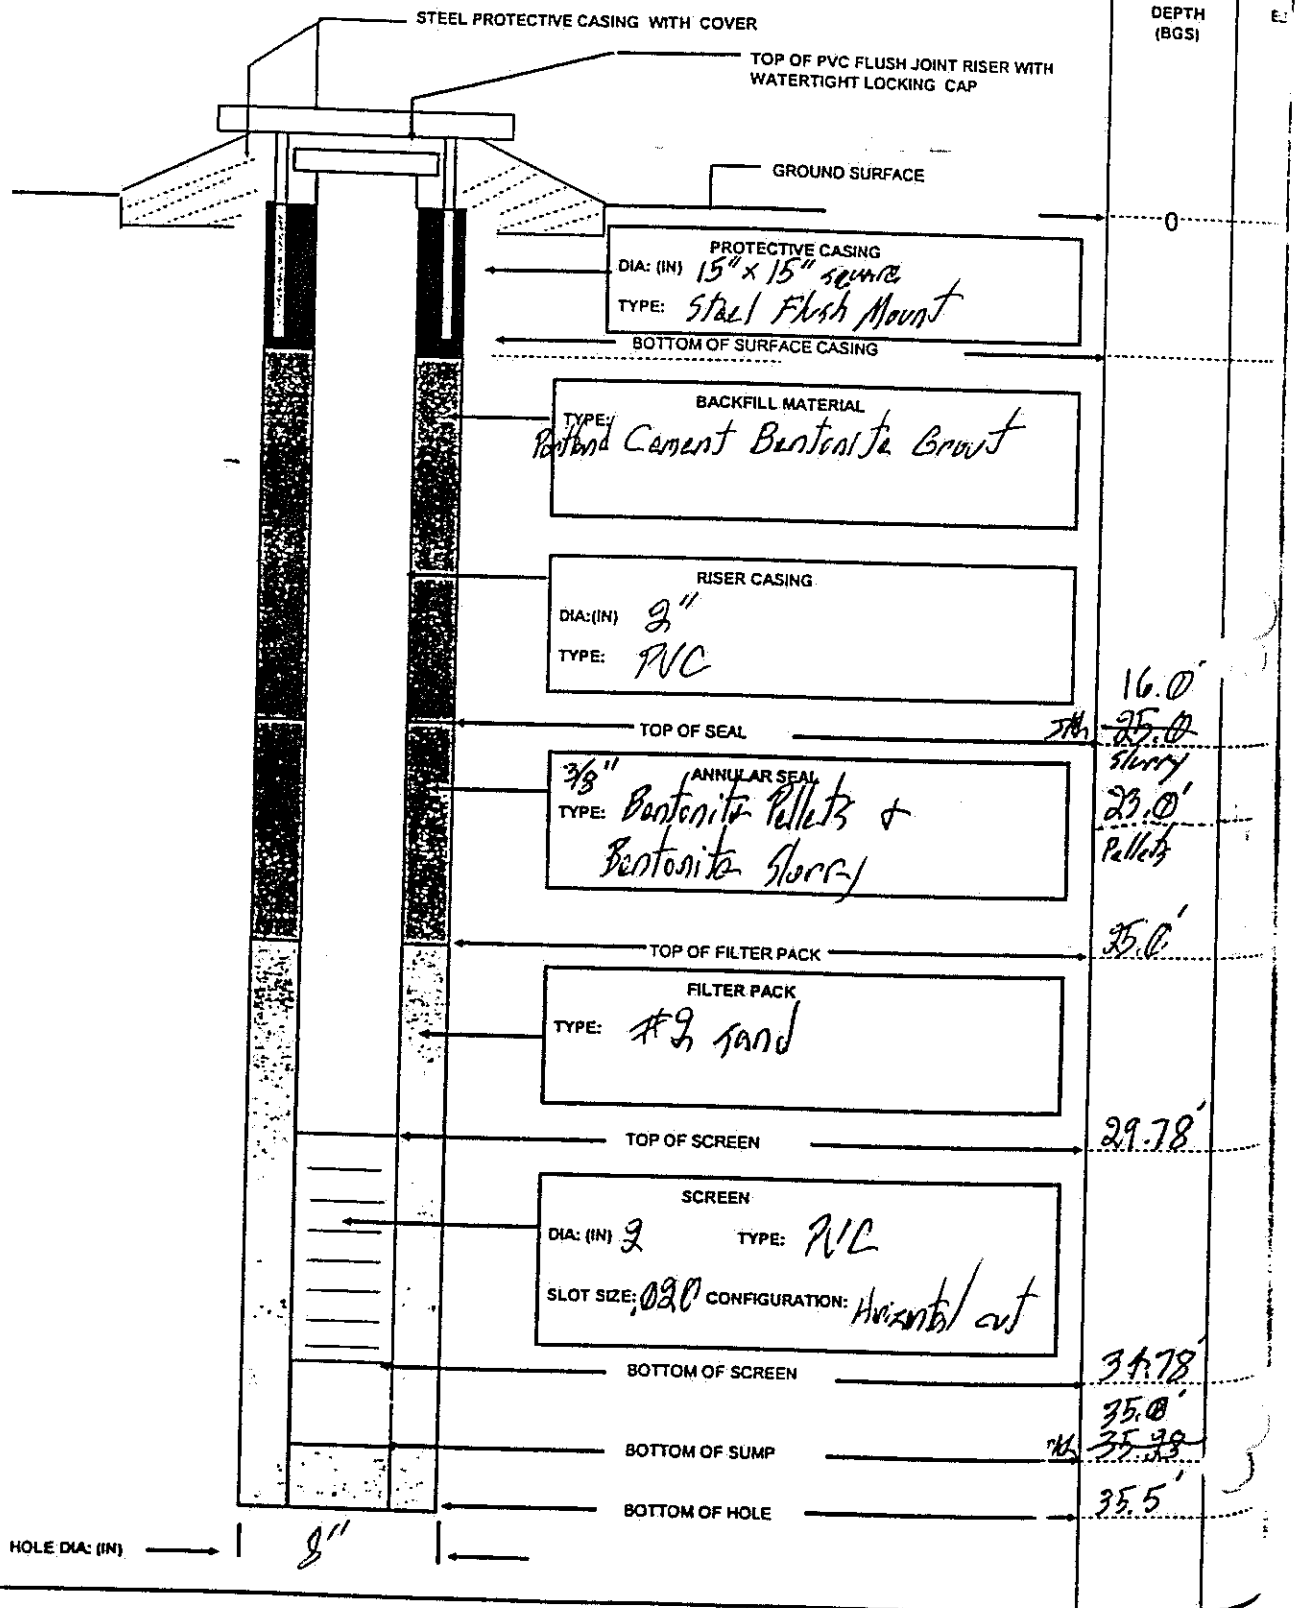 DEPTH
(BGS)
STEEL PROTECTIVE CASING WITH COVER
TOP OF PVC FLUSH JOINT RISER WITH
WATERTIGHT LOCKING CAP
GROUND SURFACE
0
PROTECTIVE CASING
DIA: (IN) 15" x 15" square
TYPE: Steel Flush Mount
BOTTOM OF SURFACE CASING
BACKFILL MATERIAL
TYPE:
Portland Cement Bentonite Grout
RISER CASING
DIA:(IN) 2"
TYPE: PVC
16.0'
TOP OF SEAL 25.0
Slurry
3/8" ANNULAR SEAL
TYPE: Bentonite Pellets & 23.0'
Bentonite Slurry Pellets
TOP OF FILTER PACK 25.0'
FILTER PACK
TYPE: #2 sand
TOP OF SCREEN 29.78'
SCREEN
DIA: (IN) 2 TYPE: PVC
SLOT SIZE: .020 CONFIGURATION: Horizontal cut
BOTTOM OF SCREEN 34.78'
35.0'
BOTTOM OF SUMP
BOTTOM OF HOLE 35.5'
HOLE DIA: (IN) 8"